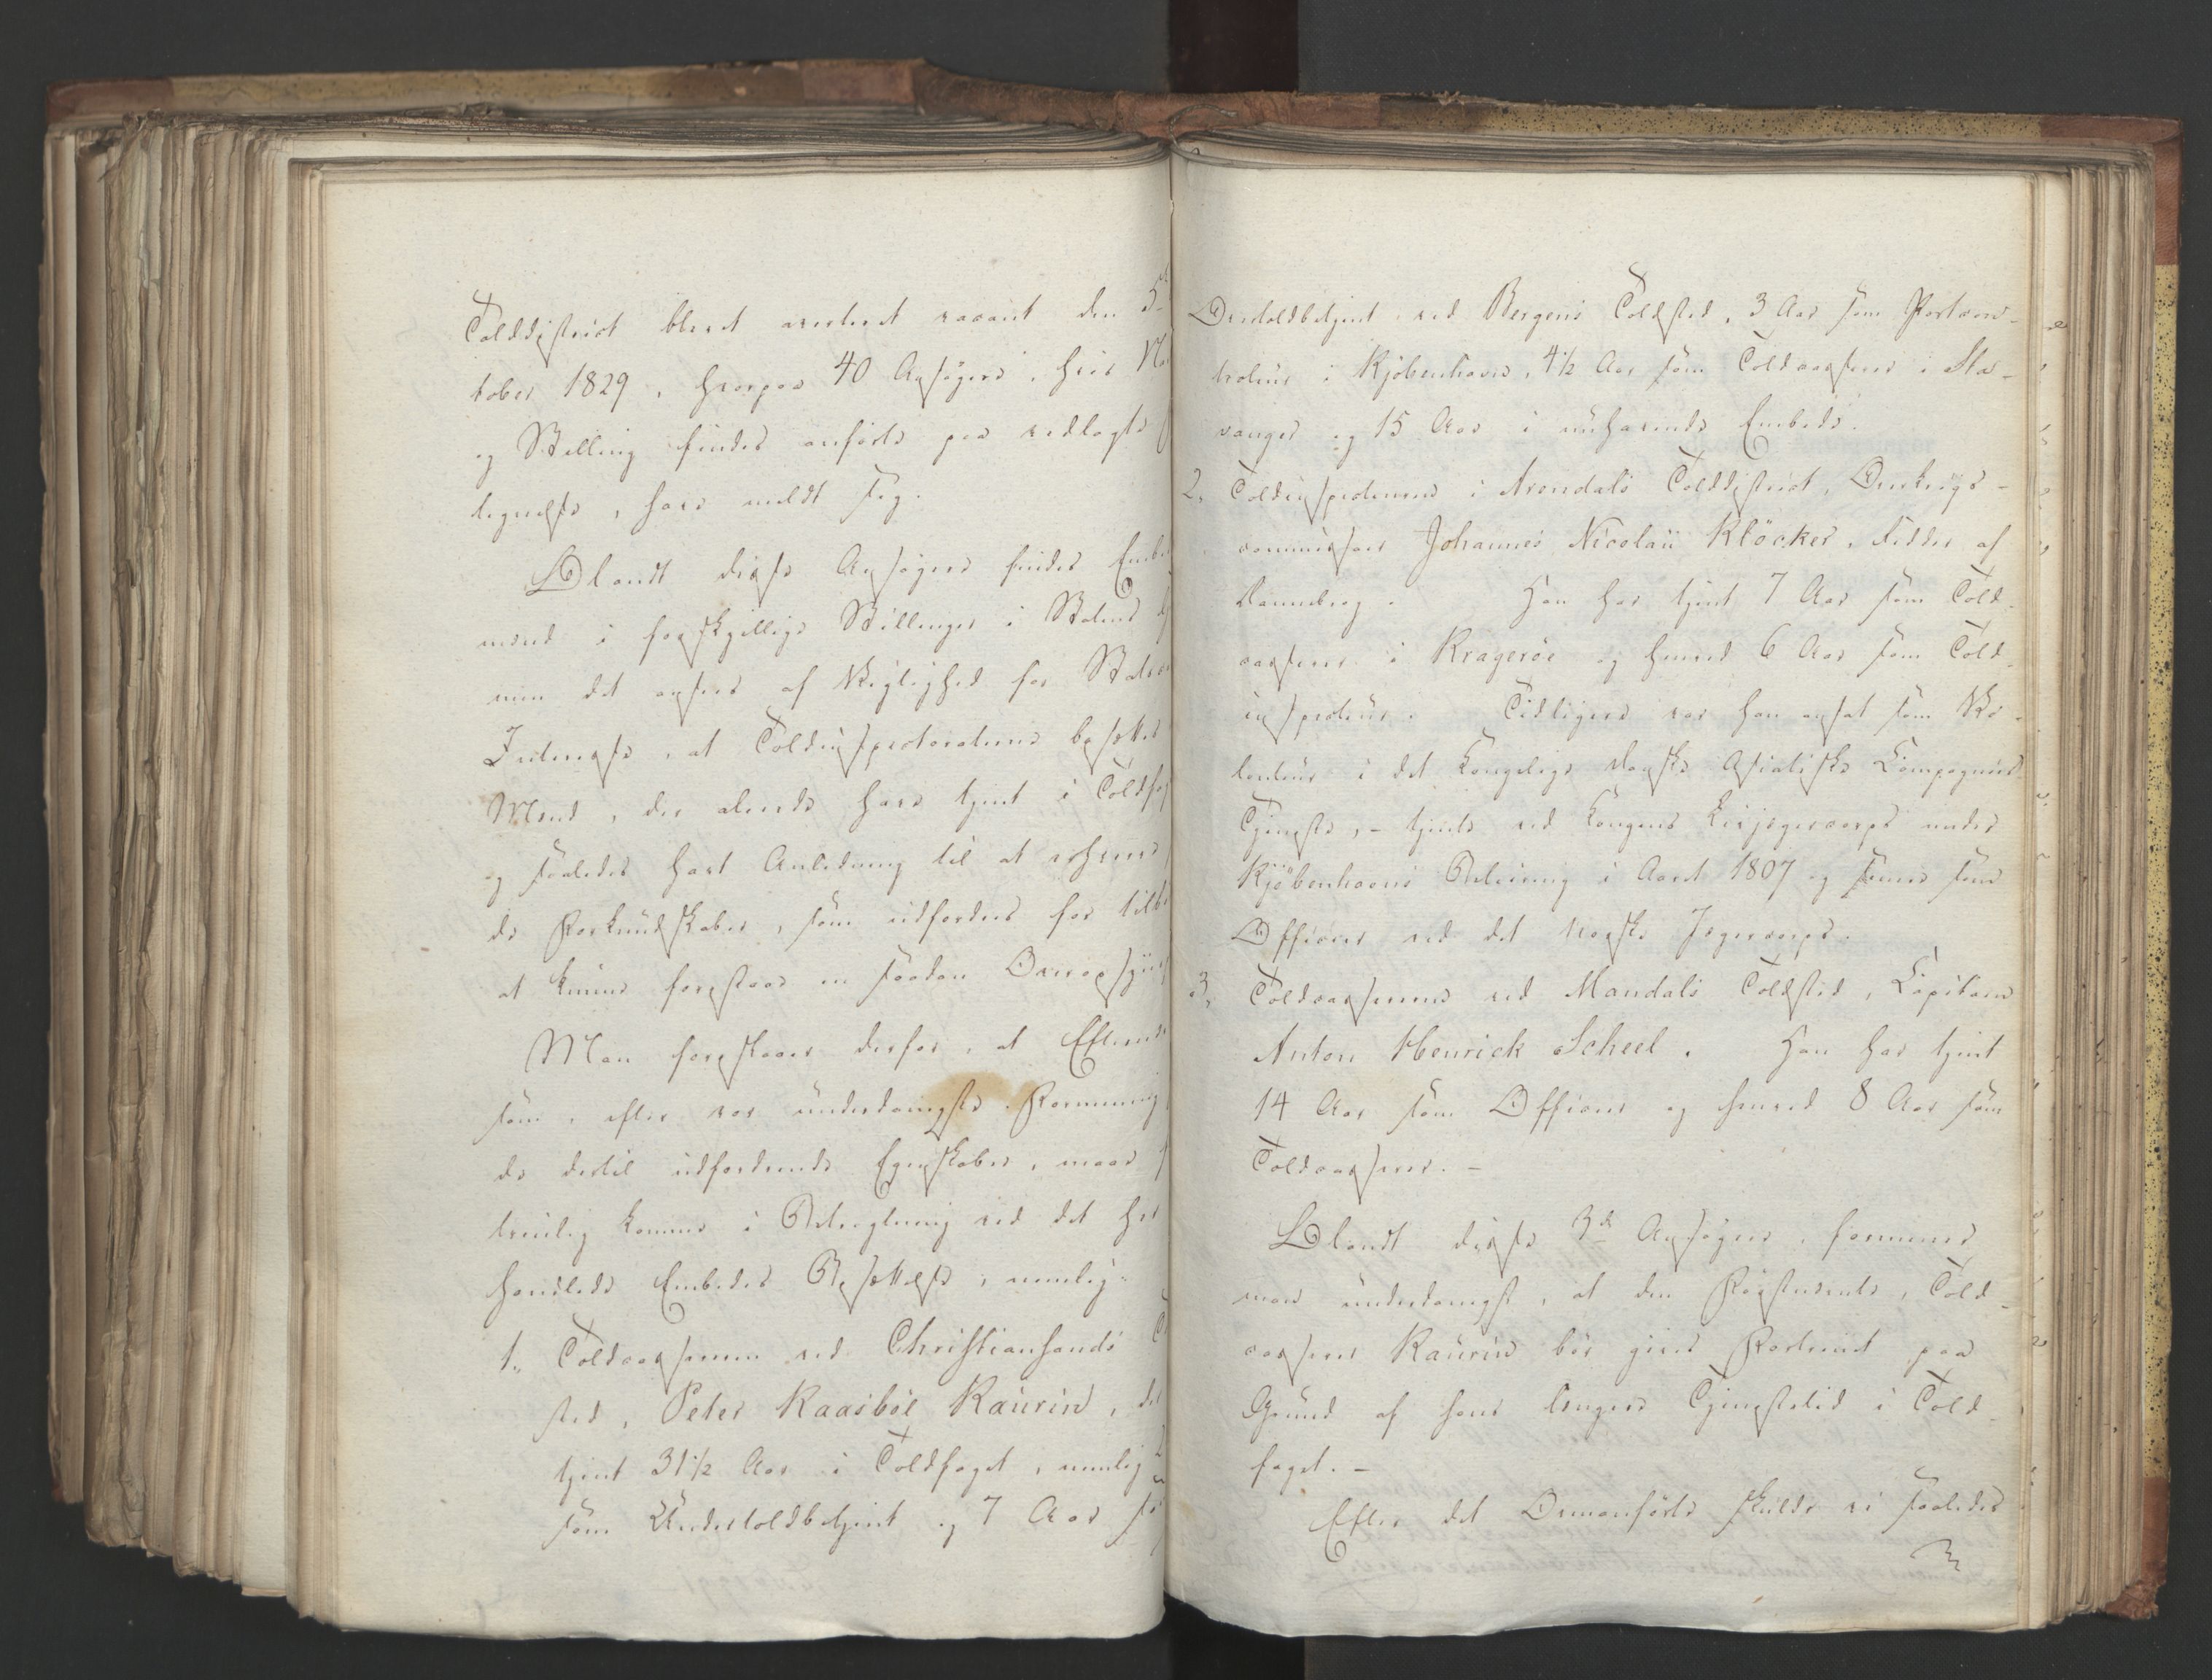 Tolddistrict blevet anmeldt vacant den 5
tober 1829, hvorpaa 40 Ansøgere, hvis Na
og Stilling findes anførte paa vedlagte
tegnelse, have meldt sig.
Blandt disse Ansøgere findes Embe
mænd i forskjellige Stillinger i Statens
men det ansees af Vigtighed for Stats
Interesse, at Toldinspectoraterne besættes
Mænd, der allerede have tjent i Toldfa
og saaledes havt Anledning til at erhverve
de Forkundskaber, som udfordres for tilbø
at kunne forestaae en saadan Overopsyns
Man foreslaaer derfor, at Eftern
som, efter vor underdanigste Formening
de dertil udfordrende Egenskaber, maae
trinlig komme i Betragtning ved det her
handlede Embedes Besættelse, nemlig:
1. Toldcasserer ved Christiansands T
sted, Peter Kaasbøl Kaurin, de
tjent 31 1/2 Aar i Toldfaget, nemlig
som Undertoldbetjent og 7 Aar so
Overtoldbetjent ved Bergens Toldsted, 3 Aar som Portcon-
trolleur i Kjøbenhavn, 4 1/2 Aar som Toldcasserer i Sta-
vanger og 15 Aar i nuhavende Embede.
2. Toldinspecteuren i Arendals Tolddistrict, Overkrigs-
commissair Johannes Nicolaii Kløcker, Ridder af
Dannebrog. Han har tjent 7 Aar som Told-
casserer i Kragerøe og henved 6 Aar som Told-
inspecteur. Tidligere var han ansat som Vo-
lonteur i det Kongelige danske Asiatiske Compagnies
Tjeneste, - tjente ved Kongens Livjægercorps under
Kjøbenhavns Beleiring i Aaret 1807 og senere som
Officeer ved det norske Jægercorps.
3. Toldcassereren ved Mandals Toldsted, Capitain
Anton Henrick Scheel. Han har tjent
14 Aar som Officeer og henved 8 Aar som
Toldcasserer. -
Blandt disse 3de Ansøgere, formener
man underdanigst, at den Førstnævnte, Told-
casserer Kaurin bør gives Fortrinet paa
Grund af hans længere Tjenestetid i Told-
faget. -
Efter det Ovenanførte skulde vi saaledes